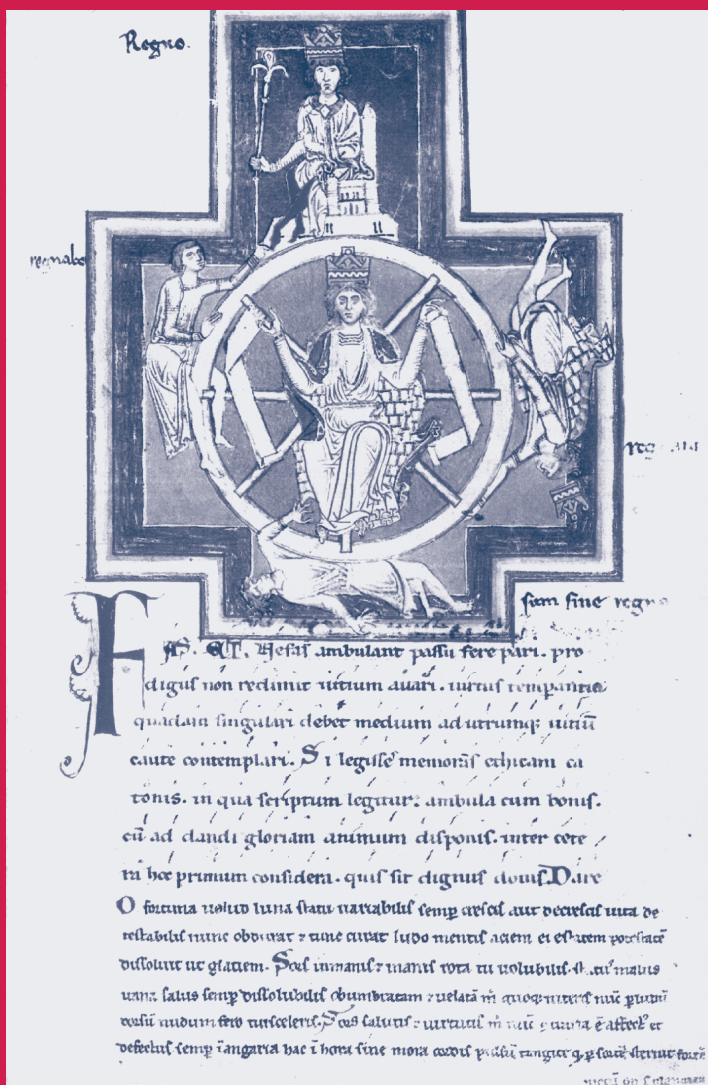 Regno.
regnabo
sum sine regno
FAS. ET. Nefas ambulant passu fere pari. pro
digus non redimit uitium auari. uirtus temperantia
quadam singulari debet medium ad utrumq; uitiū
caute contemplari. Si legisse memoras ethicam ca
tonis. in qua scriptum legitur. ambula cum bonis.
cū ad dandi gloriam animum disponis. inter cete
ra hoc primum considera. quis sit dignus donis. Dare
O fortuna uelud luna statu uariabilis semp crescis aut decrescis uita de
testabilis nunc obdurat ⁊ tunc curat ludo mentis aciem egestatem potestatē
dissoluit ut glaciem. Sors inmanis ⁊ inanis rota tu uolubilis. statꝰ malus
uana salus semp dissolubilis obumbratam ⁊ uelatā m quoq; niteris nūc p ludū
dorsū nudum fero tui sceleris. Sors salutis ⁊ uirtutis m nūc
defectus semp ī angaria hac ī hora sine mora cordis pulsū tangite q p sortē sternit fortē